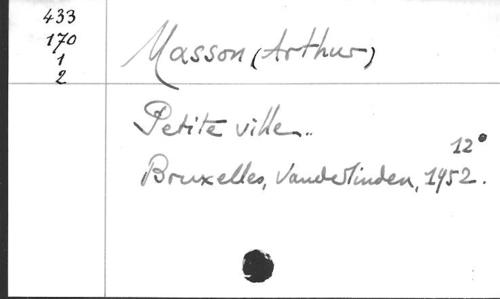 433
170
1
2
Masson (Arthur)
Petite ville..
12°
Bruxelles, Vanderlinden, 1952.